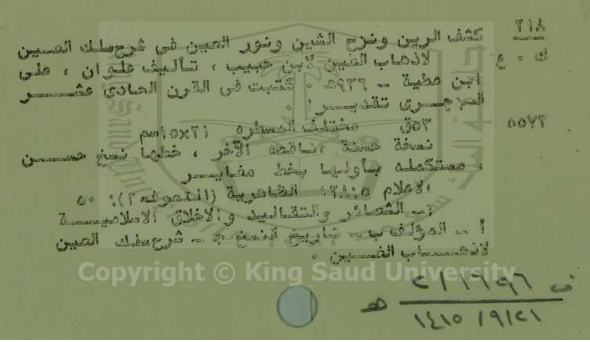 ٢١٨
ك ٠ ع
كشف الرين ونزح الشين ونور العين في شرح سلك العين
لاذهاب الغين لابن حبيب ، تأليف علوان ، على
ابن عطية ــ ٩٣٦هـ ٠ كتبت في القرن الحادى عشــر
الهجرى تقديرا ٠
٥٥٧٣
٥٣ق مختلف المسطره ٢١×١٥سم
نسخة حسنة ،ناقصه الآخر ، خطها نسخ حســن
، مستكمله بأولها بخط مغايــر
الاعلام ٥: الظاهرية (التصوف٢): ٥٠
١ــ الشعائر والتقاليد والاخلاق الاسلاميــة
أ ــ المؤلف ب ــ تاريخ النسخ ج ــ شرح سلك العين
لاذهــاب الغــين ٠
Copyright © King Saud University
ف
١٤١٥/٩/٢١ هـ